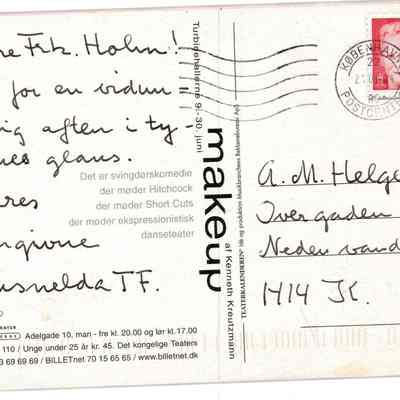 re Frk. Holm!
for en vidun=
ig aften i ty-
nes glans.
Det er svingdørskomedie
der møder Hitchcock
der møder Short Cuts
der møder ekspressionistisk
danseteater
res
ngivne
usnelda TF.
Adelgade 10, man - fre kl. 20.00 og lør kl.17.00
110 / Unge under 25 år kr 45. Det kongelige Teaters
69 69 69 / BILLETnet 70 15 65 65 / www.billetnet.dk
Turbinehallerne 9.-30. juni
makeup
af Kenneth Kreutzmann
KØBENHAVN
POSTCENTER
A. M. Helge
Overgaden
Neden vand
1414 K.